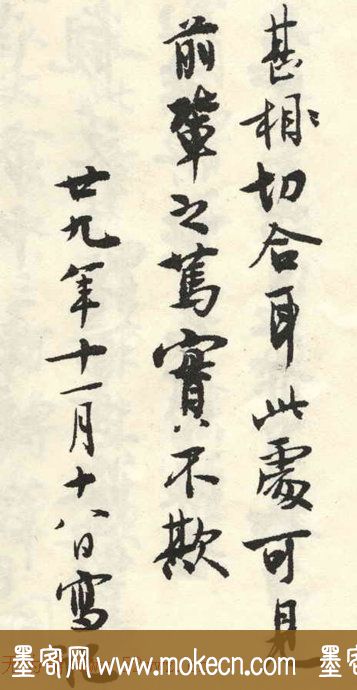 甚相切合耳此處可見
前輩之篤實不欺
廿九年十一月十八日寫
墨客网 www.mokecn.com 墨客